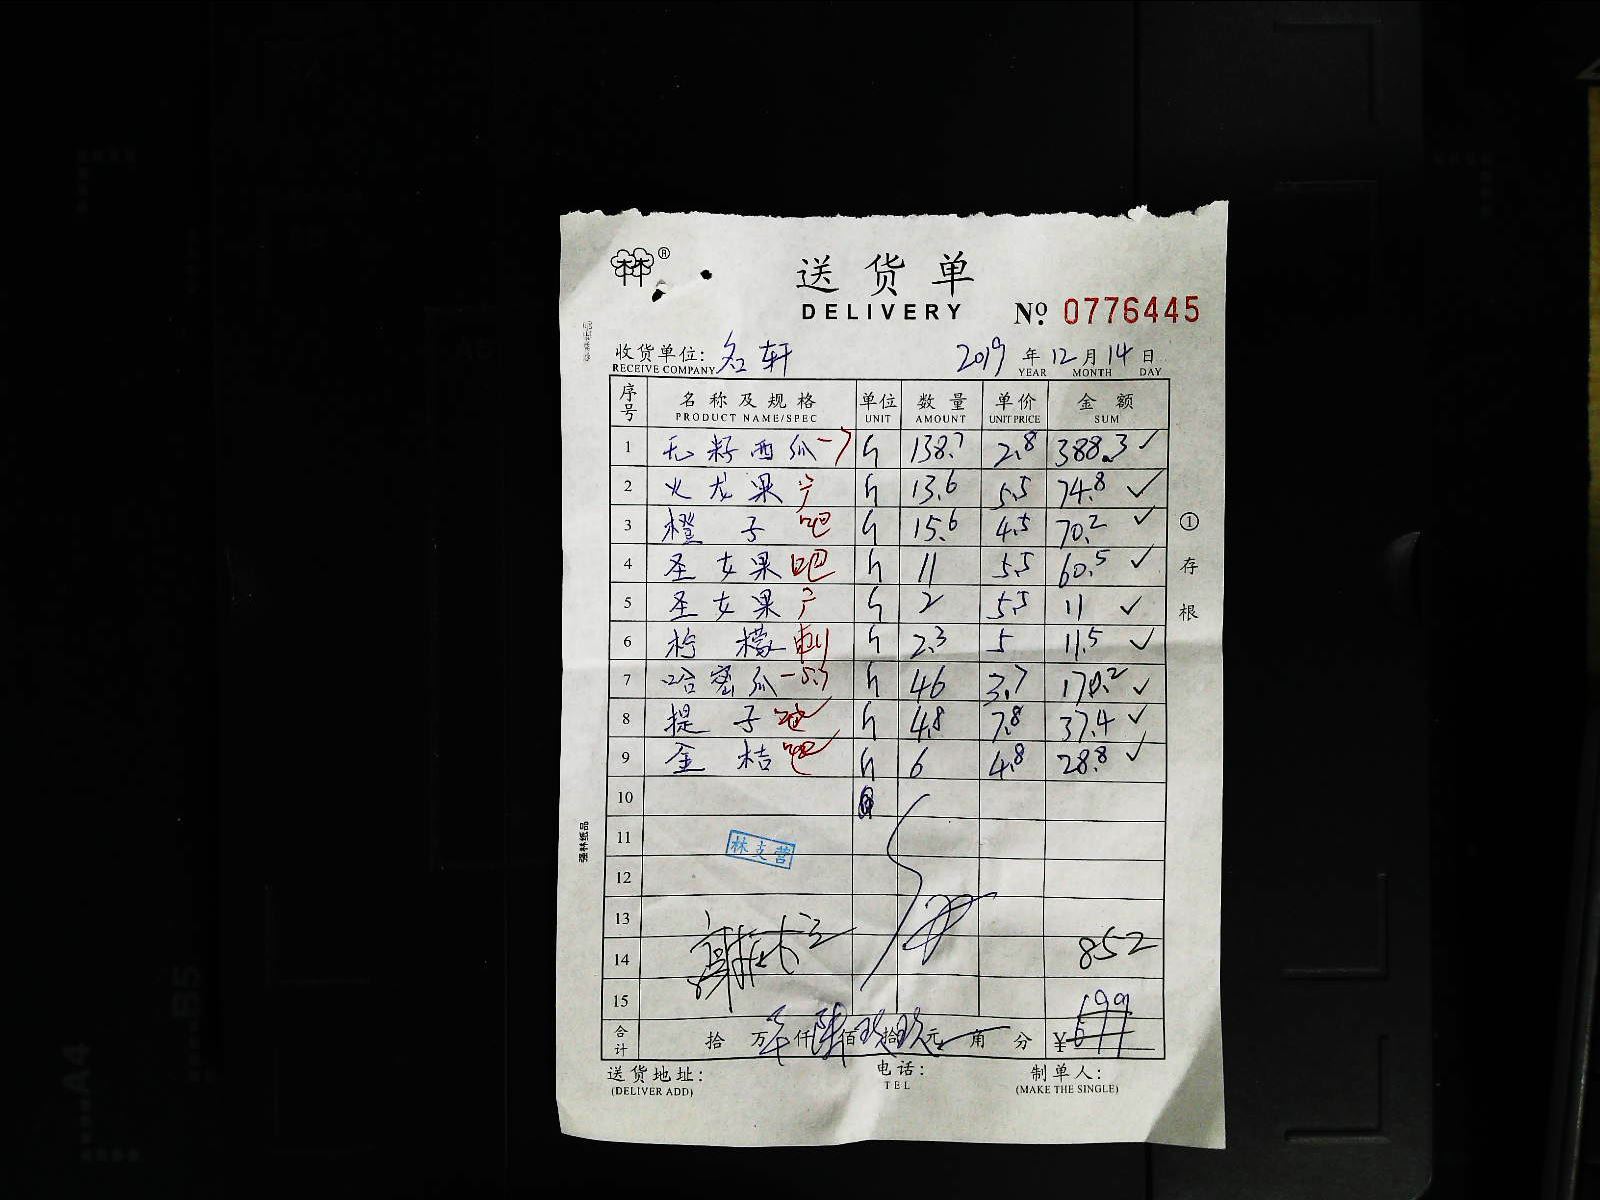 林 ®
送货单
DELIVERY № 0776445
收货单位: 名轩 2019 年 12 月 14 日
RECEIVE COMPANY YEAR MONTH DAY
序号 名称及规格 单位 数量 单价 金额
PRODUCT NAME/SPEC UNIT AMOUNT UNIT PRICE SUM
1 无籽西瓜 138.7 2.8 388.3 ✓
2 火龙果 13.6 5.5 74.8 ✓
3 橙子 吧 15.6 4.5 70.2 ✓
4 圣女果 吧 11 5.5 60.5 ✓
5 圣女果 2 5.5 11 ✓
6 柠檬 2.3 5 11.5 ✓
7 哈密瓜 46 3.7 170.2 ✓
8 提子 吧 4.8 7.8 37.4 ✓
9 金桔 吧 6 4.8 28.8 ✓
10
11
林支营
12
13
14 852
15 699
合计 拾 万 仟 陆 佰 玖 拾 玖 元 角 分 ¥
送货地址: 电话: 制单人:
(DELIVER ADD) TEL (MAKE THE SINGLE)
① 存根
强林纸品